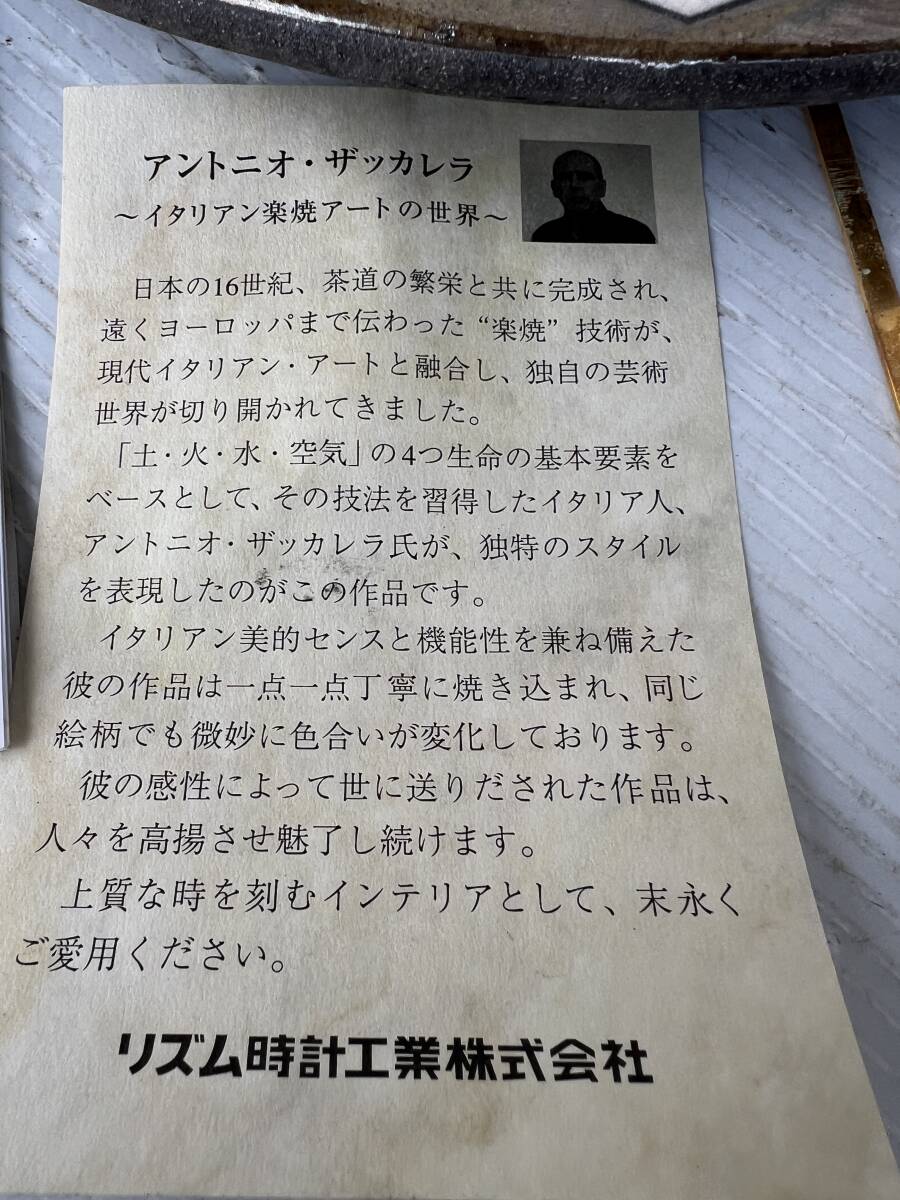 アントニオ・ザッカレラ
～イタリアン楽焼アートの世界～
日本の16世紀、茶道の繁栄と共に完成され、
遠くヨーロッパまで伝わった“楽焼”技術が、
現代イタリアン・アートと融合し、独自の芸術
世界が切り開かれてきました。
「土・火・水・空気」の4つ生命の基本要素を
ベースとして、その技法を習得したイタリア人、
アントニオ・ザッカレラ氏が、独特のスタイル
を表現したのがこの作品です。
イタリアン美的センスと機能性を兼ね備えた
彼の作品は一点一点丁寧に焼き込まれ、同じ
絵柄でも微妙に色合いが変化しております。
彼の感性によって世に送りだされた作品は、
人々を高揚させ魅了し続けます。
上質な時を刻むインテリアとして、末永く
ご愛用ください。
リズム時計工業株式会社